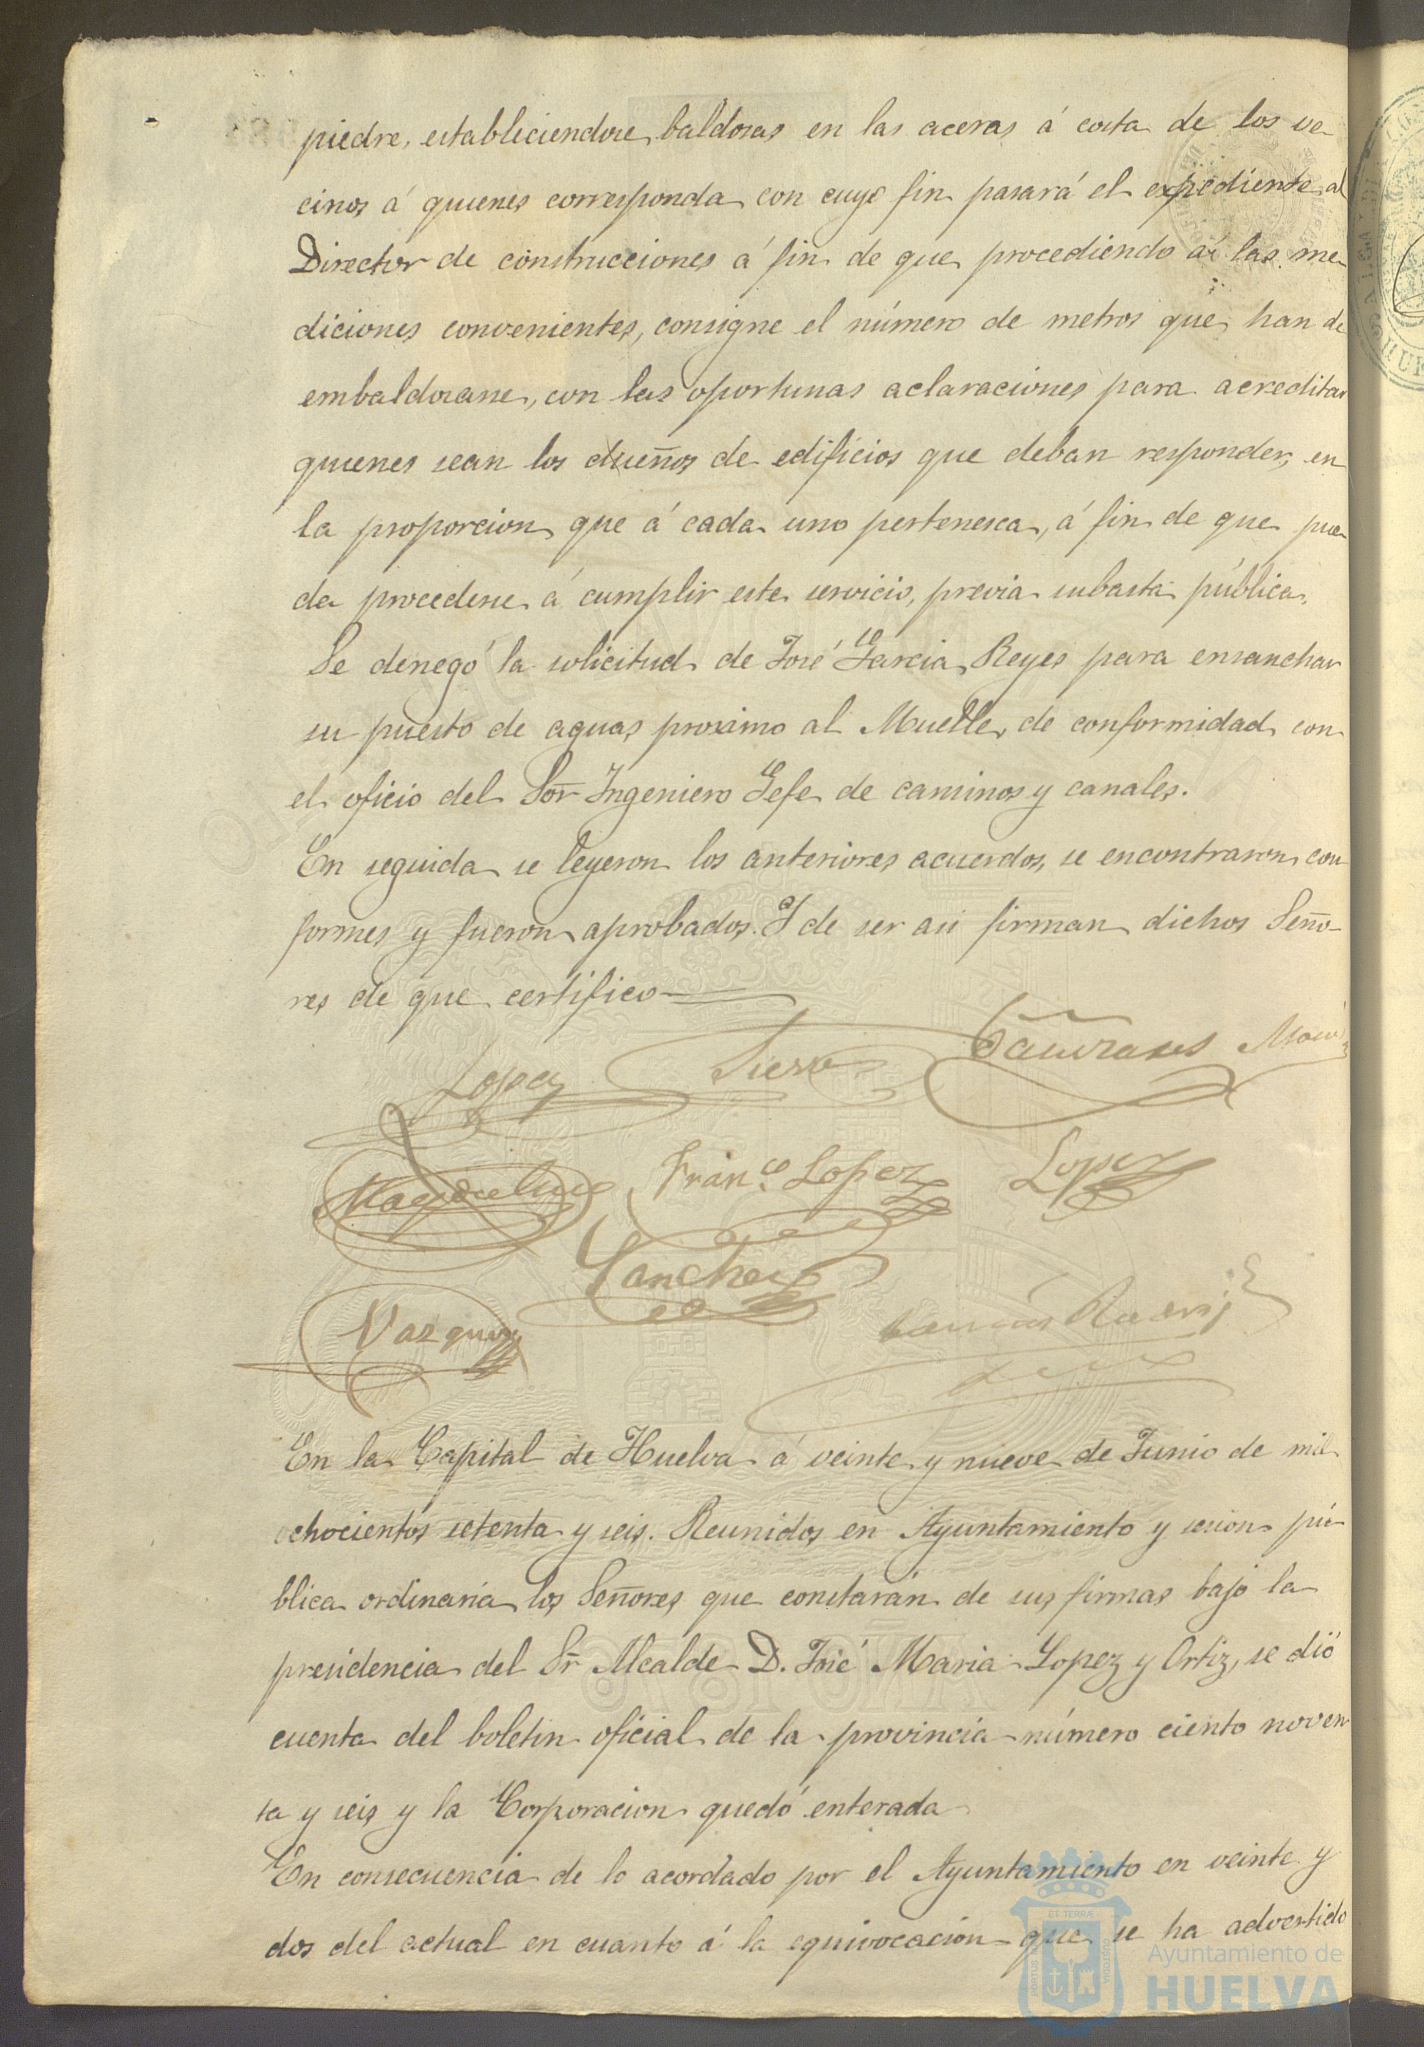 piedre, estableciendose baldosas en las aceras á costa de los ve-
cinos á quienes corresponda con cuyo fin pasará el expediente al
Director de construcciones á fin de que procediendo á las me-
diciones convenientes, consigne el número de metros que han de
embaldosarse, con las oportunas aclaraciones para acreditar
quienes sean los dueños de edificios que deban responder, en
la proporcion que á cada uno pertenesca, á fin de que pue-
da procederse á cumplir este servicio, previa subasta pública.
Se denegó la solicitud de José Garcia Reyes para ensanchar
su puesto de aguas proximo al Muelle, de conformidad con
el oficio del Sor Ingeniero Gefe de caminos y canales.
En seguida se leyeron los anteriores acuerdos, se encontraron con
formes y fueron aprobados. Y de ser asi firman dichos Seño-
res de que certifico
Lopez
Franco Lopez Lopez
Sanchez
Vazquez
En la Capital de Huelva á veinte y nueve de Junio de mil
ochocientos setenta y seis. Reunidos en Ayuntamiento y sesion pú-
blica ordinaria los Señores que constarán de sus firmas bajo la
presidencia del Sr Alcalde D. José Maria Lopez y Ortiz, se dió
cuenta del boletin oficial de la provincia número ciento noven
ta y seis y la Corporacion quedó enterada
En consecuencia de lo acordado por el Ayuntamiento en veinte y
dos del actual en cuanto á la equivocacion que se ha advertido
Ayuntamiento de
HUELVA